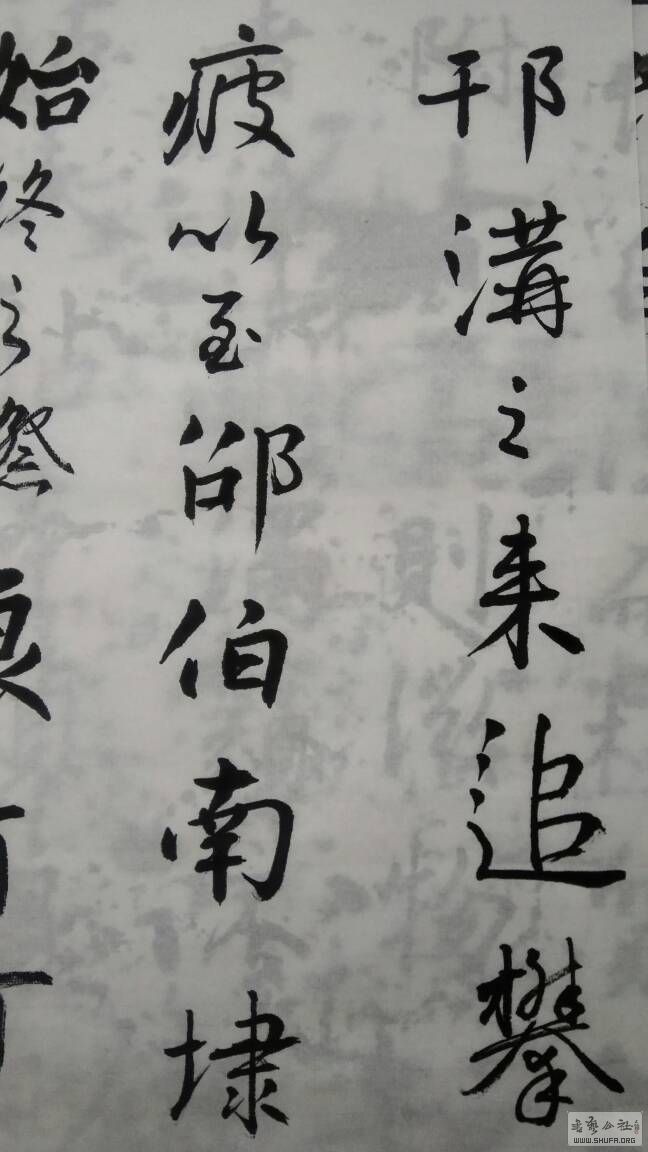 邗溝之来追攀
疲以至邵伯南埭
始終之然
書藝公社
WWW.SHUFA.ORG